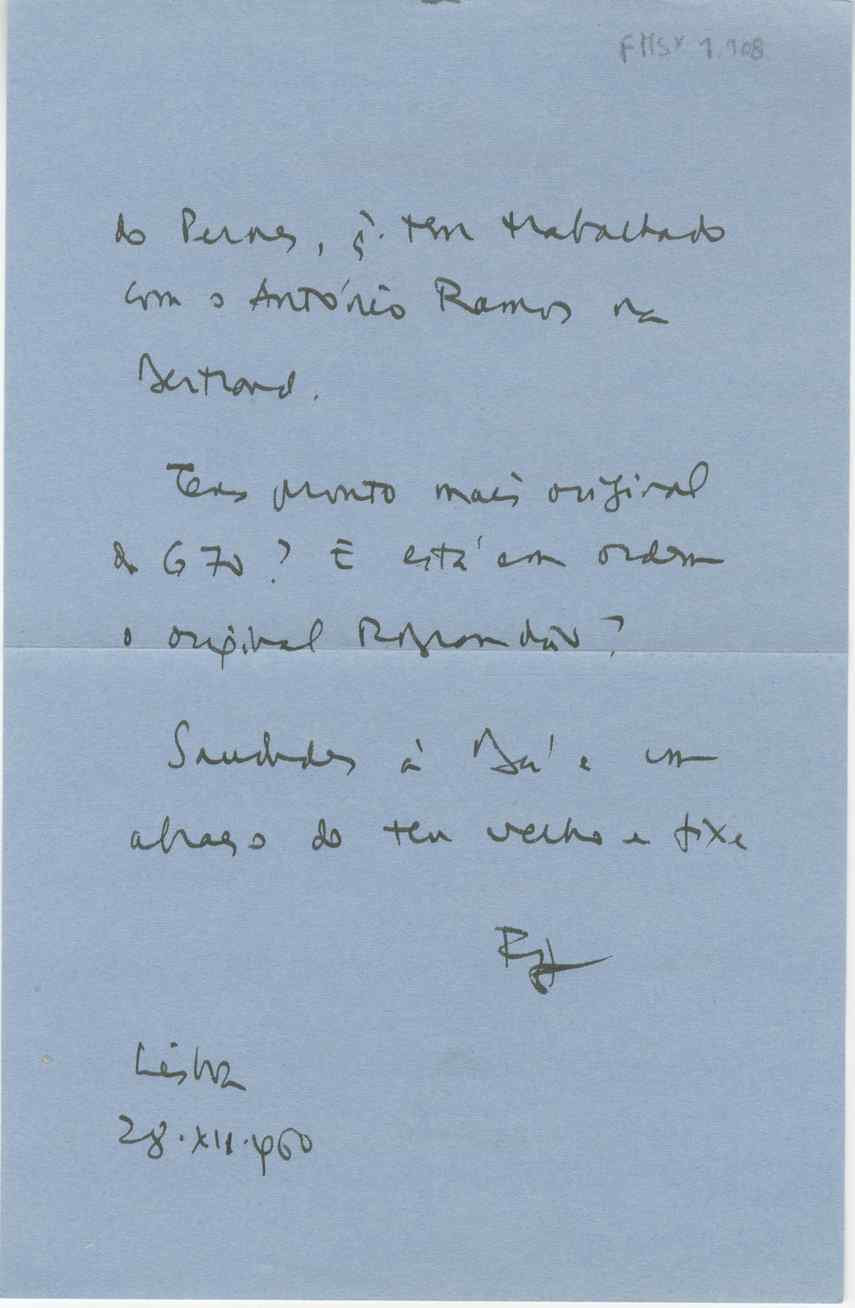 FMSX 1.108
do Pernes, q. tem trabalhado
com o António Ramos na
Bertrand.
Tens pronto mais original
do G 70? E está em ordem
o original
Saudades à Bá e um
abraço do teu velho e fixe
Lisboa
28.XII.960